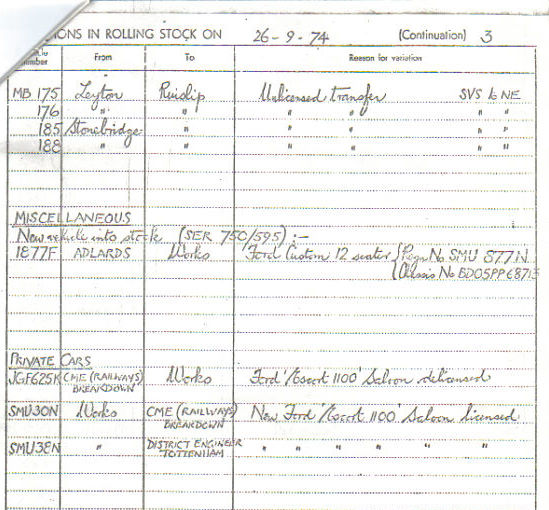 IONS IN ROLLING STOCK ON 26-9-74 (Continuation) 3
number From To Reason for variation
MB 175 Leyton Ruislip Unlicensed transfer SVS to NE
176 " " " " " "
185 Stonebridge " " " " "
188 " " " " " "
MISCELLANEOUS
New vehicle into stock (SER 750/595) :-
1877F ADLARDS Works Ford Custom 12 seater { Regn No SMU 877N
Chassis No BD05PP68713
PRIVATE CARS
JGF625K CME (RAILWAYS) Works Ford 'Escort 1100' Saloon delicensed
BREAKDOWN
SMU30N Works CME (RAILWAYS) New Ford 'Escort 1100' Saloon licensed
BREAKDOWN
SMU38N " DISTRICT ENGINEER " " " " " "
TOTTENHAM